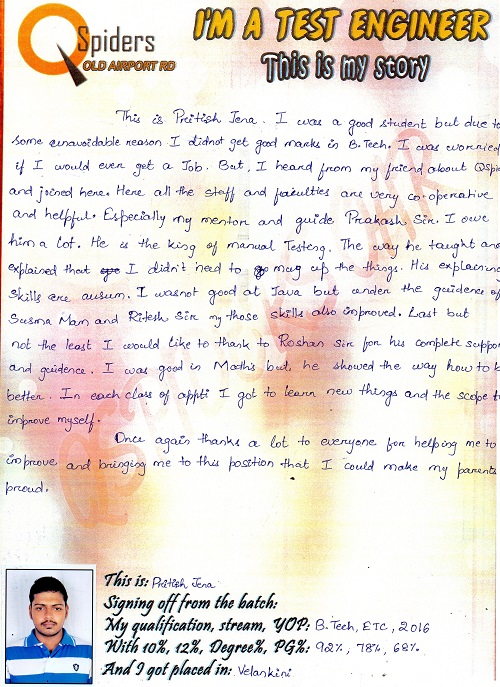 QSpiders
OLD AIRPORT RD
I'M A TEST ENGINEER
This is my story
This is Pritish Jena. I was a good student but due to
some unavoidable reason I didnot get good marks in B.Tech. I was worried
if I would ever get a Job. But, I heard from my friend about QSpi
and joined here. Here all the staff and faculties are very co-operative
and helpful. Especially my mentor and guide Prakash Sir. I owe
him a lot. He is the king of manual Testing. The way he taught and
explained that I didn't need to mug up the things. His explaining
skills are ausum. I wasnot good at Java but under the guidence of
Susma Mam and Ritesh Sir my those skills also improved. Last but
not the least I would like to thank to Roshan sir for his complete suppor
and guidence. I was good in Maths but, he showed the way how to b
better. In each class of appti I got to learn new things and the scope t
improve myself.
Once again thanks a lot to everyone for helping me to
improve and bringing me to this position that I could make my parents
proud.
This is: Pritish Jena
Signing off from the batch:
My qualification, stream, YOP: B.Tech, ETC, 2016
With 10%, 12%, Degree%, PG%: 92%, 78%, 68%
And I got placed in: Velankini